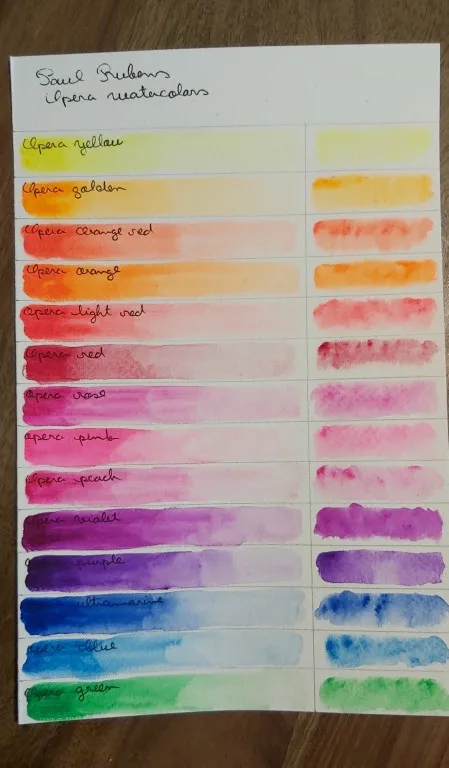 Paul Rubens
Opera watercolors
Opera yellow
Opera golden
Opera orange red
Opera orange
Opera light red
Opera red
Opera rose
Opera pink
Opera peach
Opera violet
Opera purple
Opera ultramarine
Opera blue
Opera green